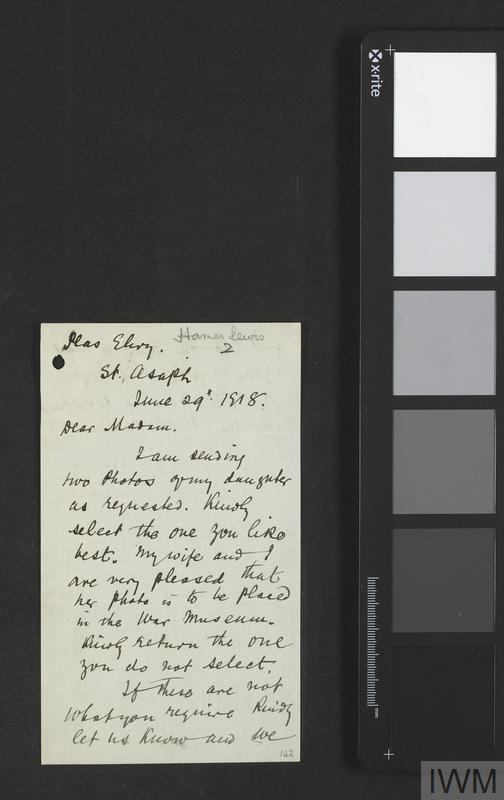 Hamer Lewis
2
Plas Elwy.
St. Asaph
June 29th 1918.
Dear Madam.
I am sending
two Photos of my daughter
as requested. Kindly
select the one you like
best. My wife and I
are very pleased that
her photo is to be placed
in the War Museum.
Kindly return the one
you do not select.
If these are not
what you require Kindly
let us know and we
142
x-rite
mm
IWM